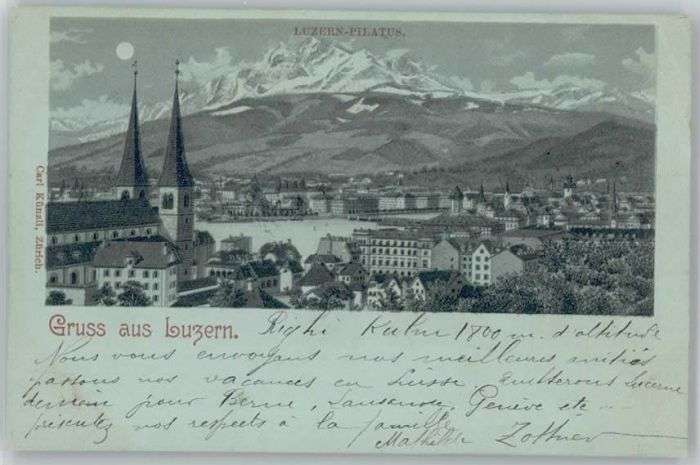 LUZERN-PILATUS.
Carl Künzli, Zürich.
Gruss aus Luzern. Righi Kulm 1800 m. d'altitude
Nous vous envoyons nos meilleures amitiés
passons nos vacances en Suisse quitterons Lucerne
demain pour Berne, Lausanne, Genève etc
présentez nos respects à la famille
Mathilde Zottner